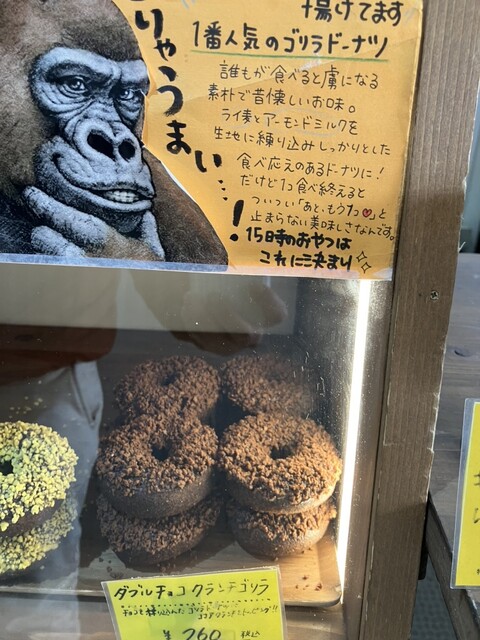 揚げてます
りゃうまい…!
1番人気のゴリラドーナツ
誰もが食べると虜になる
素朴で昔懐しいお味。
ライ麦とアーモンドミルクを
生地に練り込みしっかりとした
食べ応えのあるドーナツに!
だけど1つ食べ終えると
ついつい「あと、もう1つ♥」と
止まらない美味しさなんです。
15時のおやつは
これに決まり
ダブルチョコクランチゴリラ
チョコを練り込んだゴリラドーナツに
ココアクランチをトッピング!!
¥260 税込